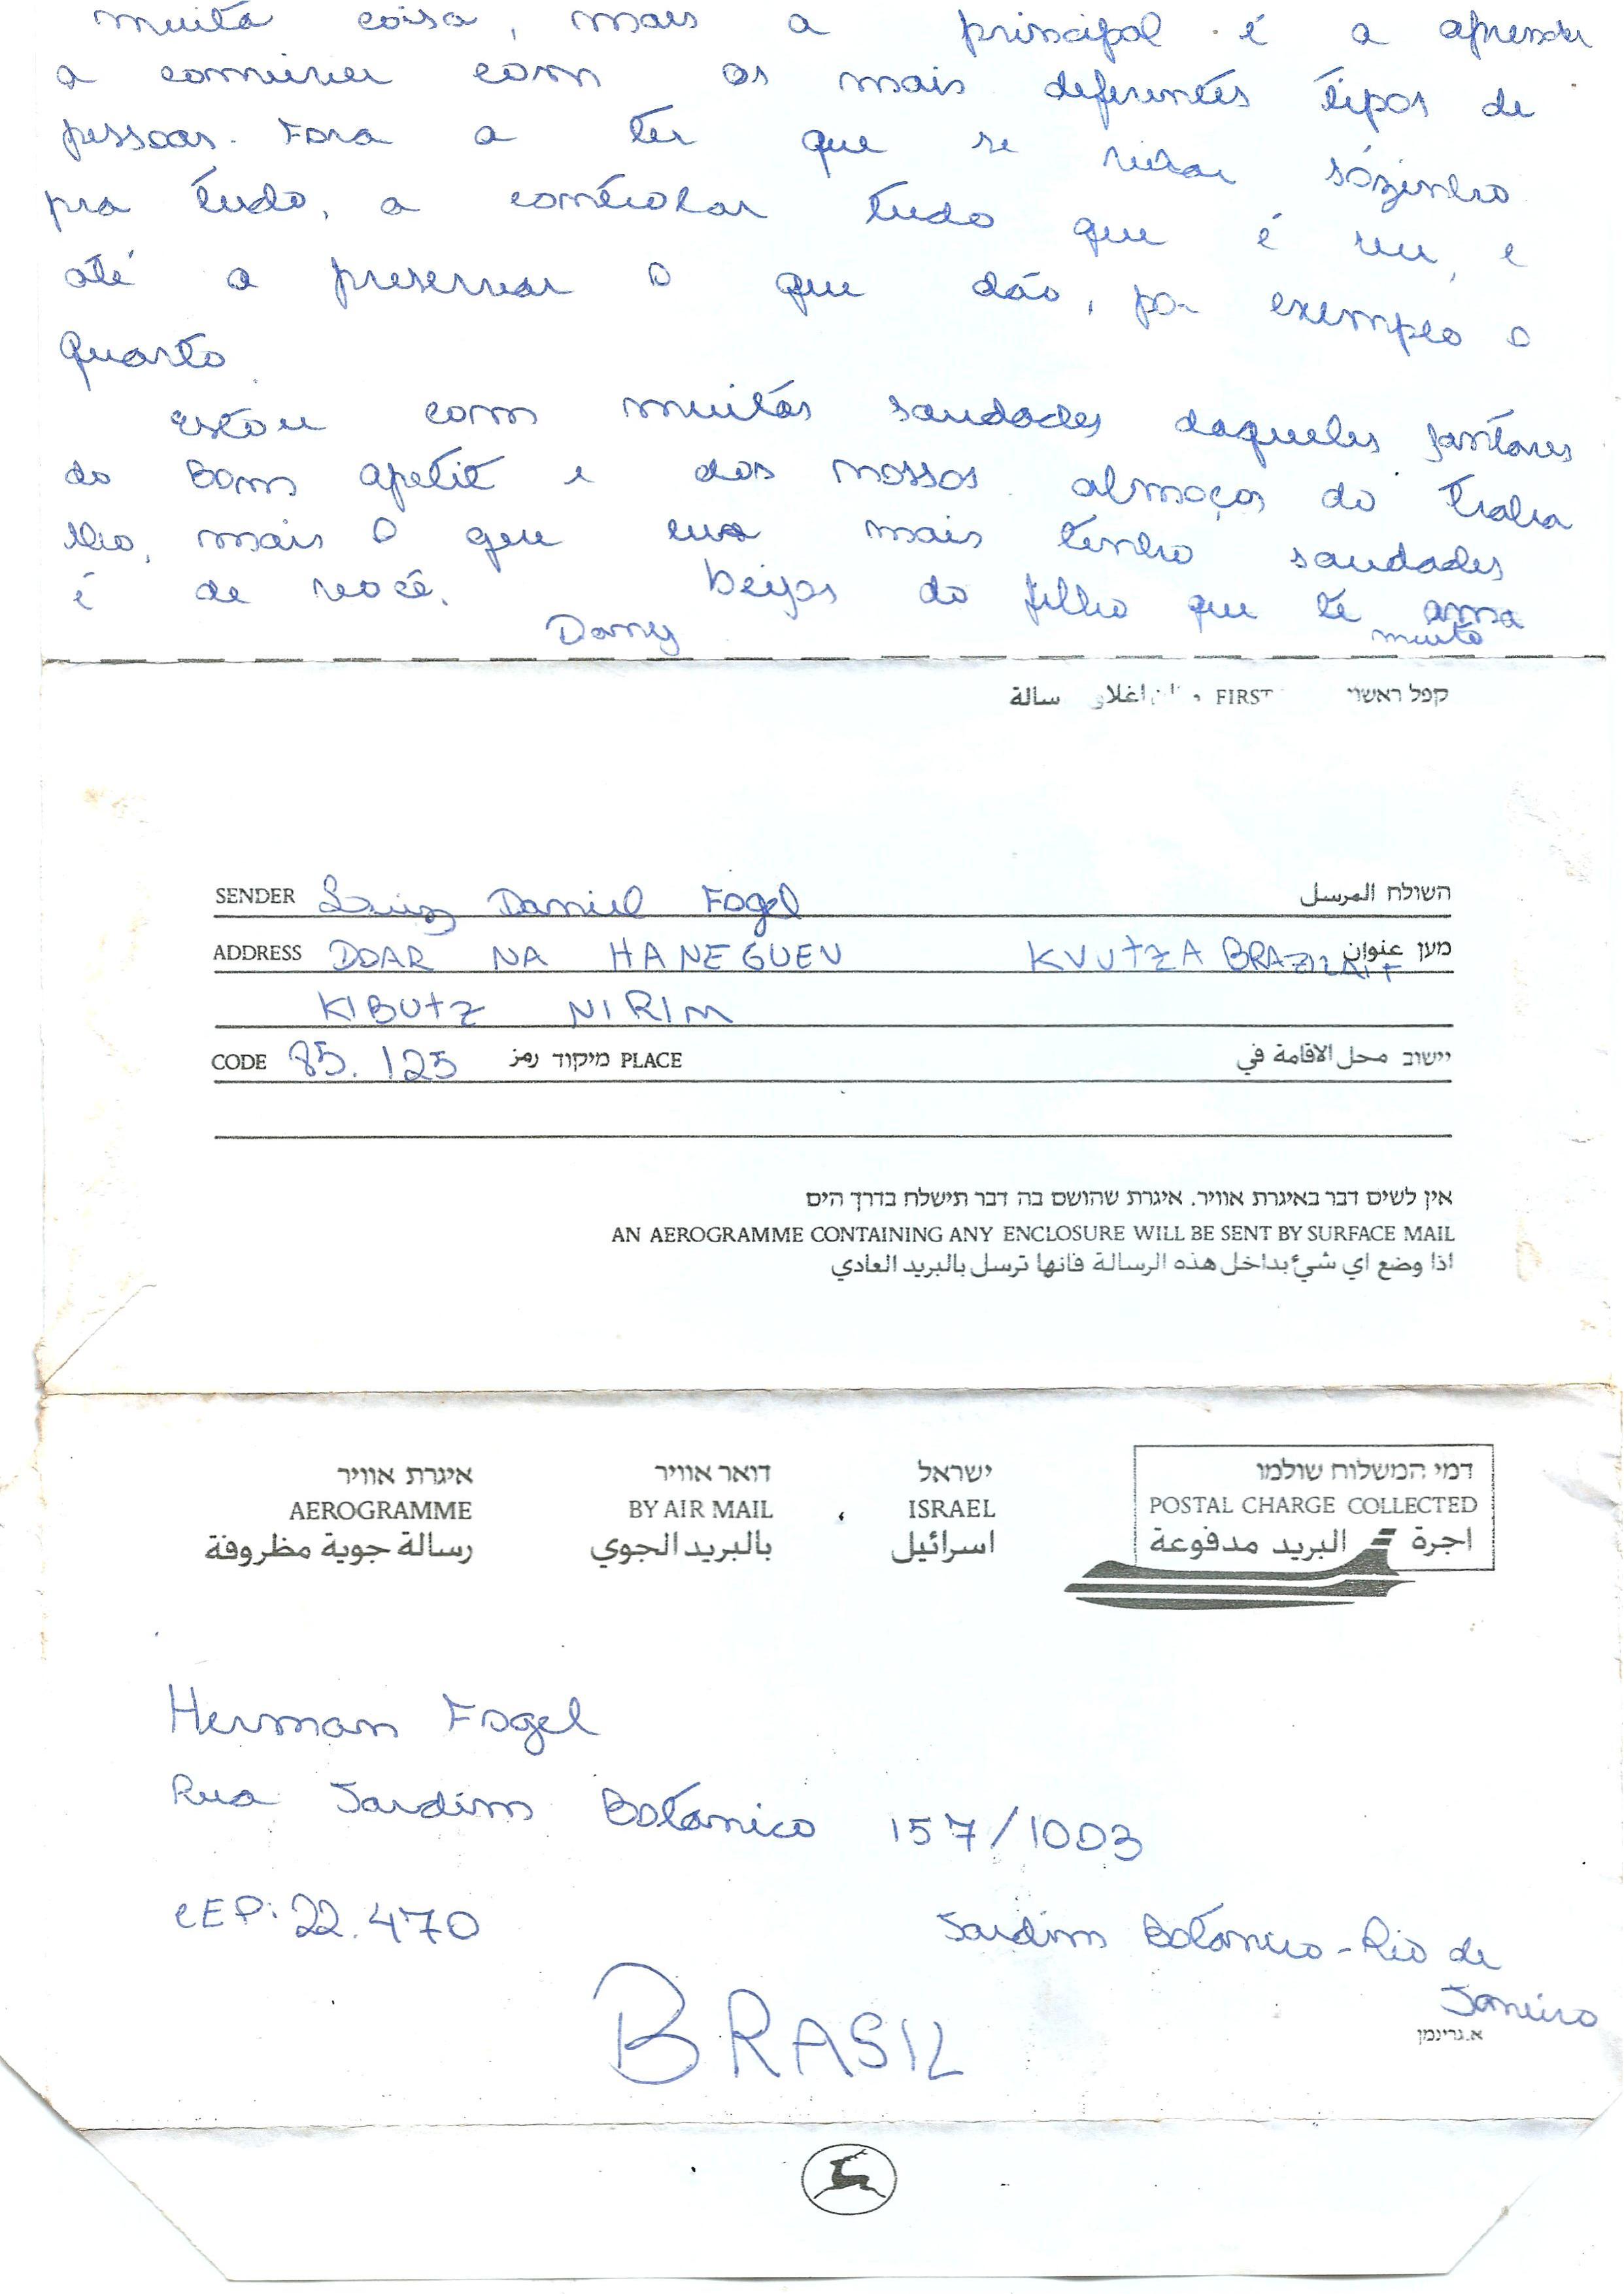 muita coisa, mais a principal é a aprender
a conviver com os mais deferentes tipos de
pessoas. Fora a ter que se virar sózinho
pra tudo, a controlar tudo que é seu, e
até a preservar o que dão, por exemplo o
quarto
Estou com muitas saudades daqueles jantares
do Bom apetit e dos nossos almoços do traba
lho, mais o que mais tenho saudades
é de você. beijos do filho que te ama
muito
Dany
קפל ראשון FIRST سالة
SENDER Luiz Daniel Fogel השולח المرسل
ADDRESS DOAR NA HANEGUEV KVUTZA BRAZILAIT מען عنوان
KIBUTZ NIRIM
CODE 85.125 מיקוד رمز PLACE יישוב محل الاقامة في
אין לשים דבר באיגרת אוויר. איגרת שהושם בה דבר תישלח בדרך הים
AN AEROGRAMME CONTAINING ANY ENCLOSURE WILL BE SENT BY SURFACE MAIL
اذا وضع اي شيء بداخل هذه الرسالة فانها ترسل بالبريد العادي
איגרת אוויר דואר אוויר ישראל דמי המשלוח שולמו
AEROGRAMME BY AIR MAIL ISRAEL POSTAL CHARGE COLLECTED
رسالة جوية مظروفة بالبريد الجوي اسرائيل اجرة البريد مدفوعة
Herman Fogel
Rua Jardim Botanico 157/1003
CEP: 22.470 Jardim Botânico - Rio de
Janeiro
א.גרינמן
BRASIL